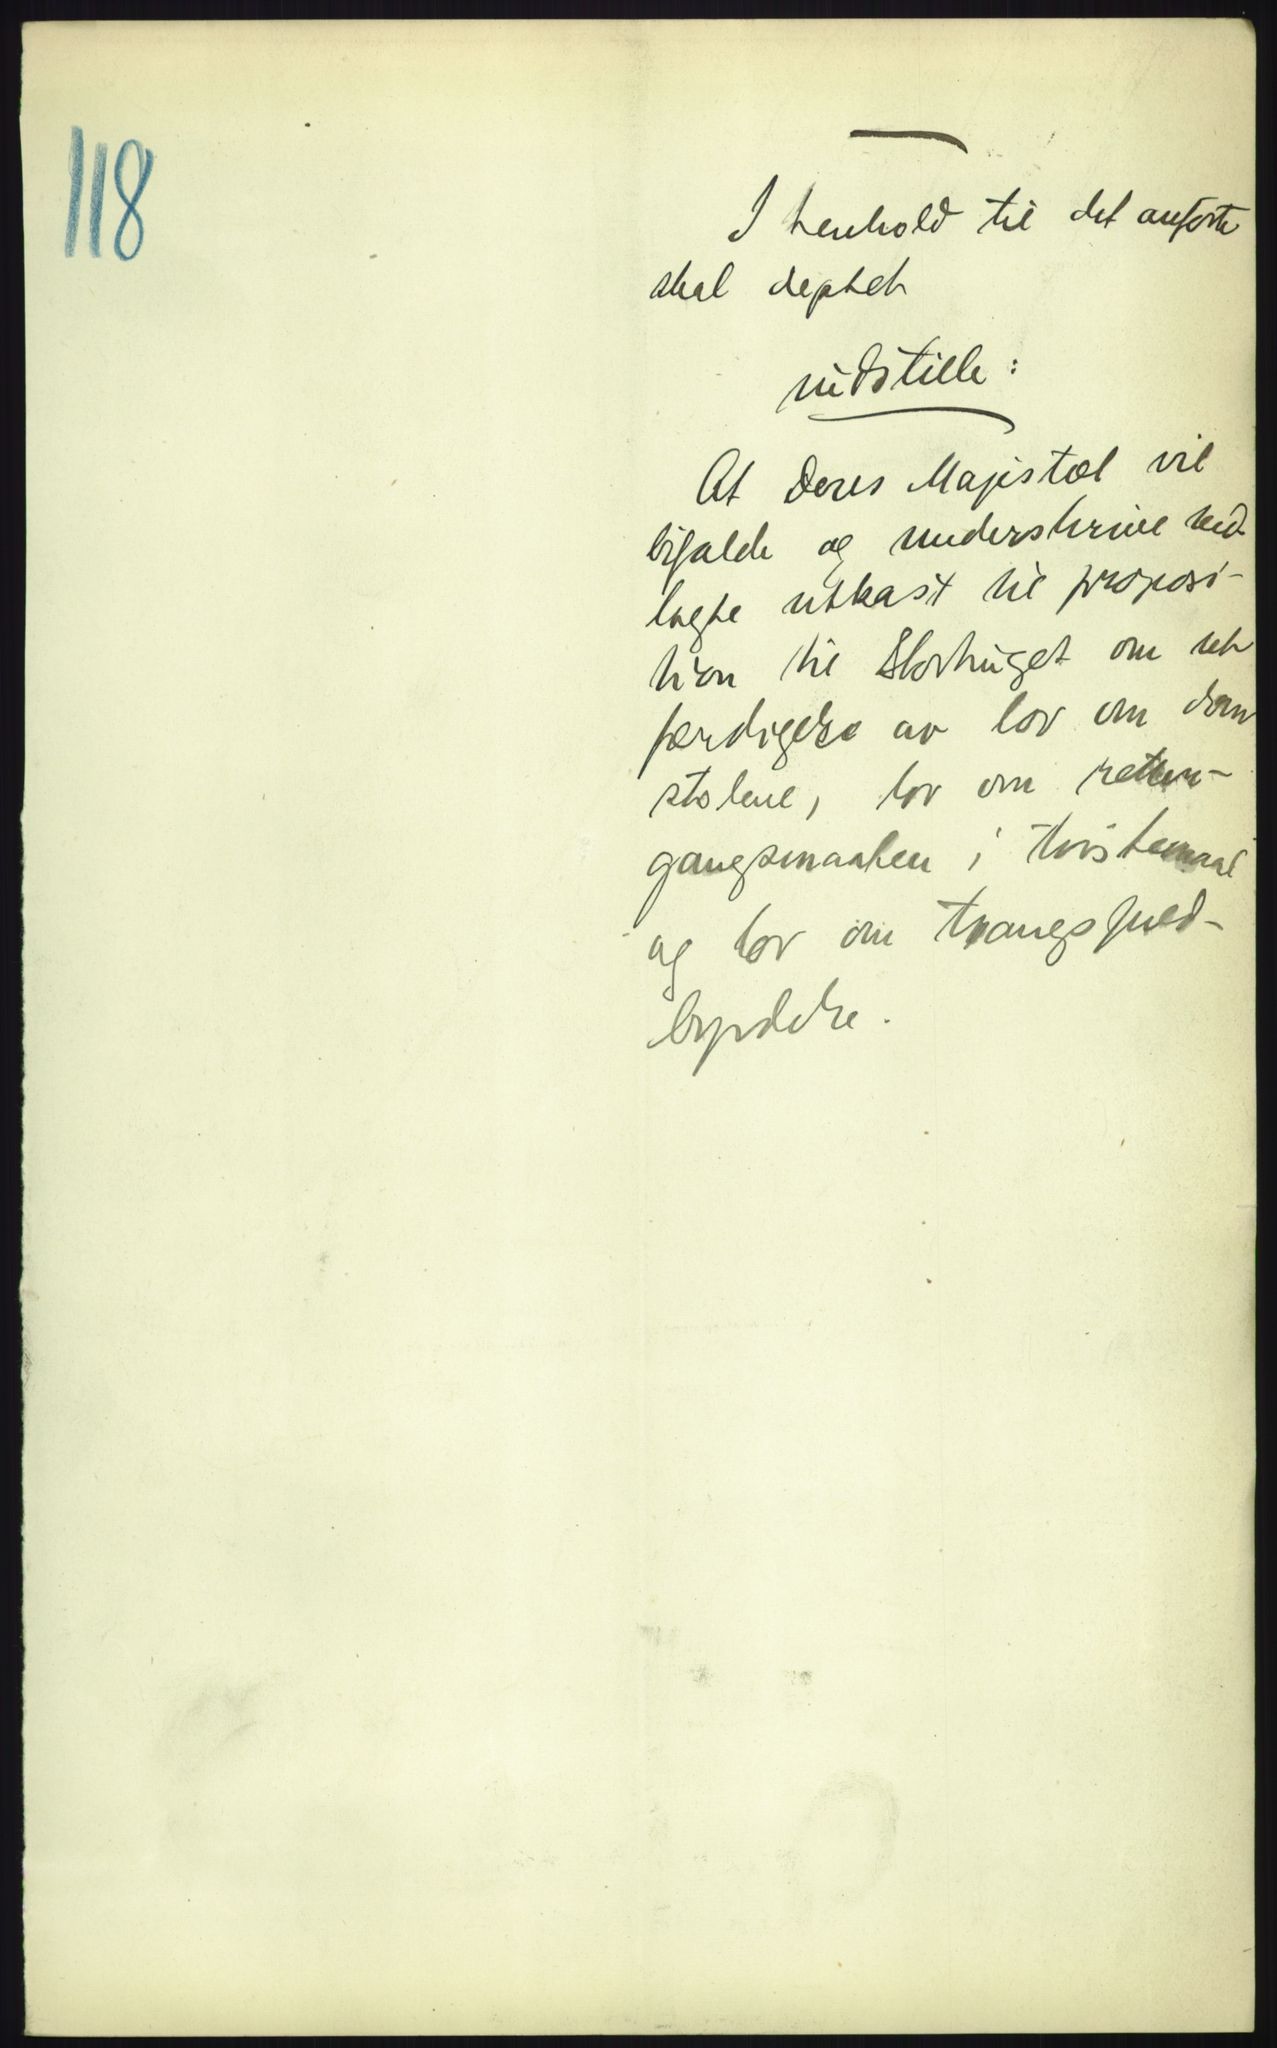 118
I henhold til det anførte
skal deptet
indstille:
At Deres Majestæt vil
bifalde og underskrive ved-
lagte utkast til proposi-
tion til Stortinget om ret-
færdigelse av lov om dom
stolene, lov om retter-
gangsmaaten i tvistemaal
og lov om tvangsfuld-
byrdelse.